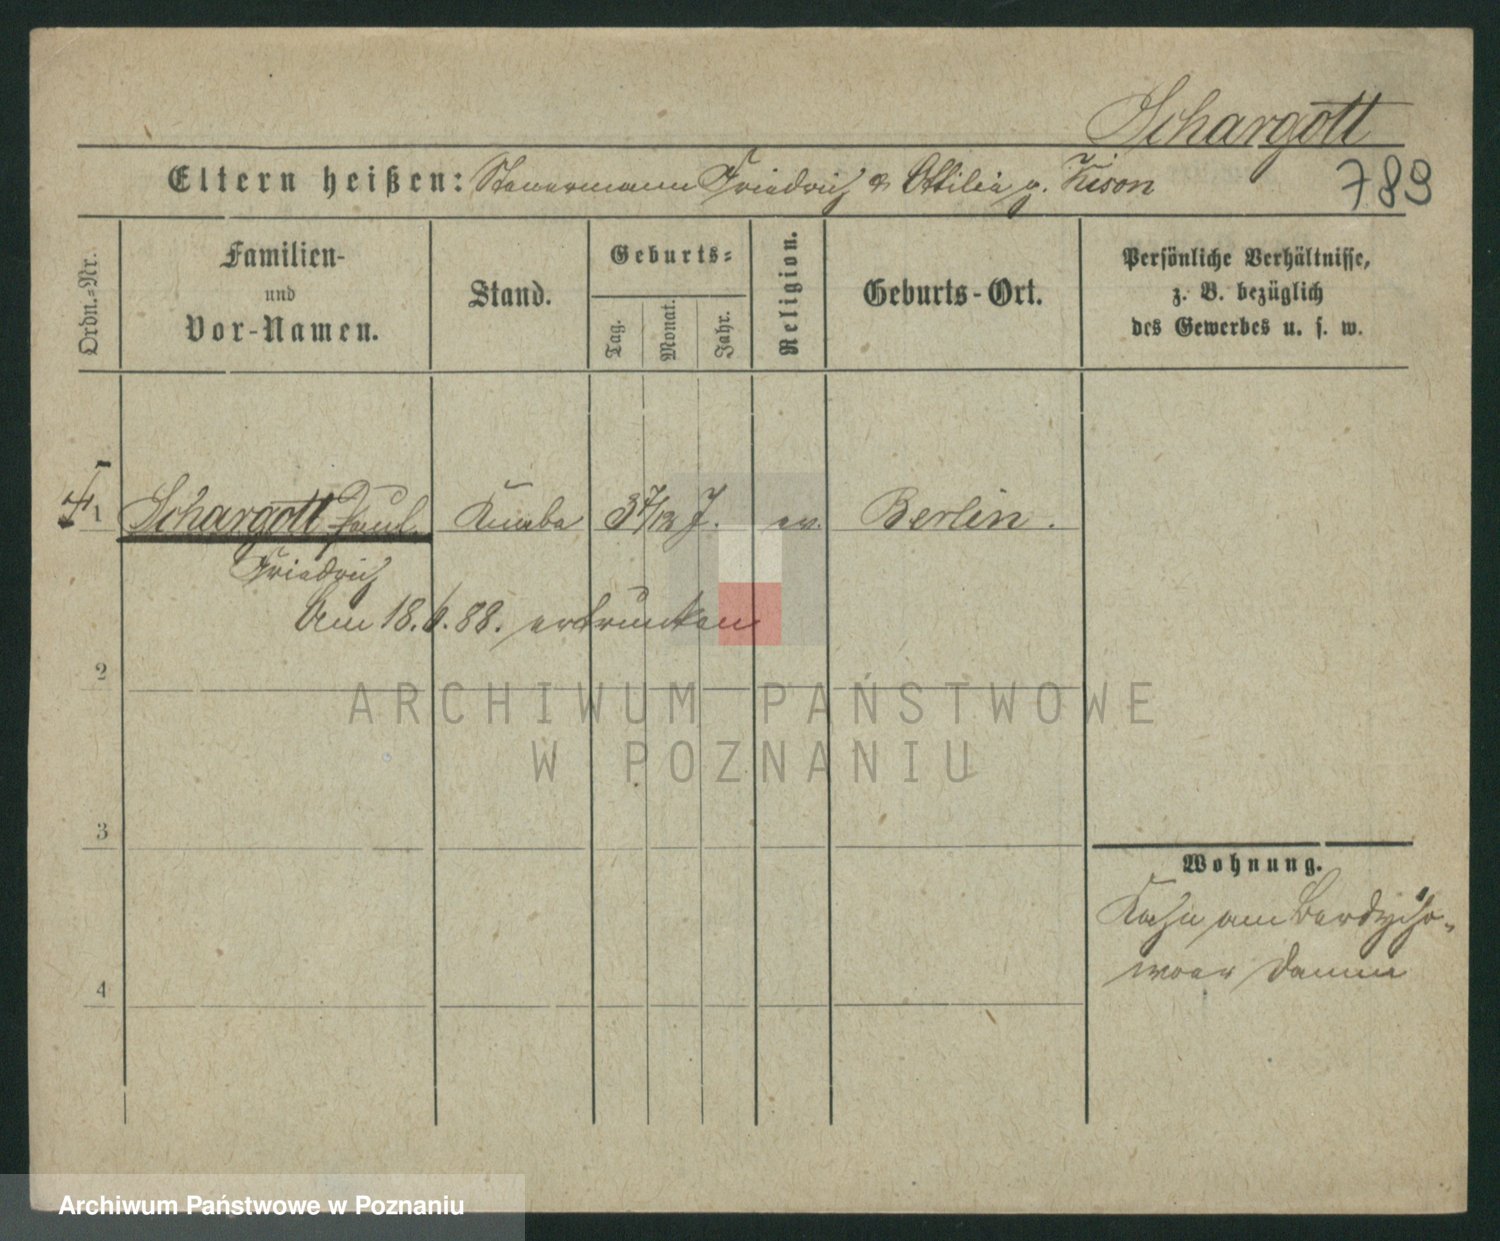 Schargott
789
Eltern heißen: Steuermann Friedrich & Ottilie g. Kison
Ordn.-Nr.
Familien-
und
Vor-Namen.
Stand.
Geburts-
Tag.
Monat.
Jahr.
Religion.
Geburts-Ort.
Persönliche Verhältnisse,
z. B. bezüglich
des Gewerbes u. s. w.
1 Schargott Paul Knabe 3 7/12 J. ev. Berlin.
Friedrich
Am 18.6.88. ertrunken
2
3
4
Wohnung.
Kahn am Berdycho-
woer Damm
ARCHIWUM PAŃSTWOWE
W POZNANIU
Archiwum Państwowe w Poznaniu